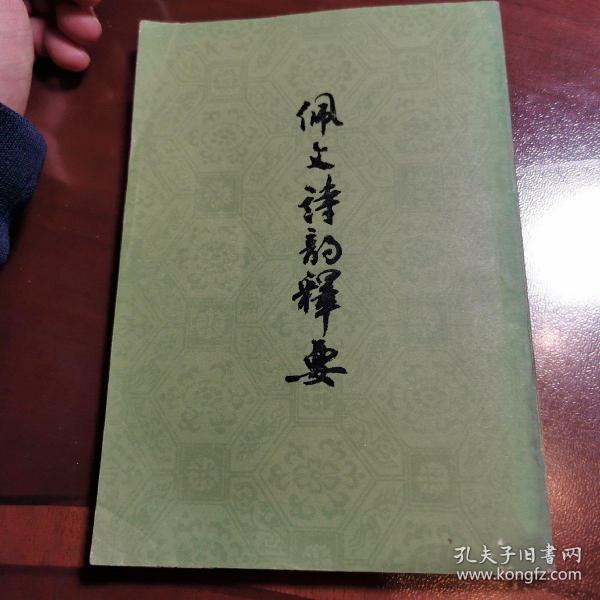 佩文诗韵釋要
孔夫子旧書网
www.kongfz.com